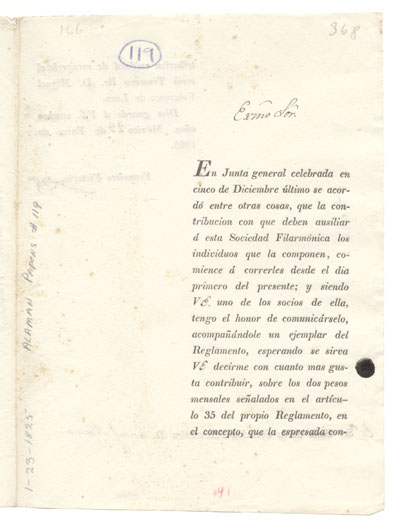 166
119
368
Exmo Sor.
En Junta general celebrada en
cinco de Diciembre último se acor-
dó entre otras cosas, que la con-
tribucion con que deben auxiliar
á esta Sociedad Filarmónica los
individuos que la componen, co-
mience á correrles desde el dia
primero del presente; y siendo
VE. uno de los socios de ella,
tengo el honor de comunicárselo,
acompañándole un ejemplar del
Reglamento, esperando se sirva
VE decirme con cuanto mas gus-
ta contribuir, sobre los dos pesos
mensales señalados en el artícu-
lo 35 del propio Reglamento, en
el concepto, que la espresada con-
1-23-1825 ALAMAN PAPERS # 119